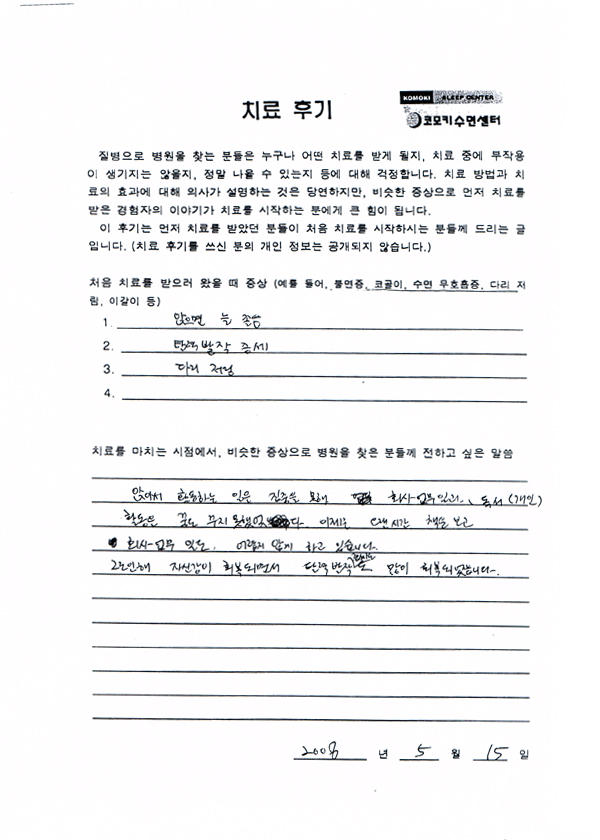 KOMOKI SLEEP CENTER
치료 후기
코모키수면센터
질병으로 병원을 찾는 분들은 누구나 어떤 치료를 받게 될지, 치료 중에 부작용
이 생기지는 않을지, 정말 나을 수 있는지 등에 대해 걱정합니다. 치료 방법과 치
료의 효과에 대해 의사가 설명하는 것은 당연하지만, 비슷한 증상으로 먼저 치료를
받은 경험자의 이야기가 치료를 시작하는 분에게 큰 힘이 됩니다.
이 후기는 먼저 치료를 받았던 분들이 처음 치료를 시작하시는 분들께 드리는 글
입니다. (치료 후기를 쓰신 분의 개인 정보는 공개되지 않습니다.)
처음 치료를 받으러 왔을 때 증상 (예를 들어, 불면증, 코골이, 수면 무호흡증, 다리 저
림, 이갈이 등)
1. 앉으면 늘 졸음
2. 탄력발작 증세
3. 다리 저림
4.
치료를 마치는 시점에서, 비슷한 증상으로 병원을 찾은 분들께 전하고 싶은 말씀
앉아서 활동하는 일은 집중을 못해 회사업무 독서 (개인)
활동은 꿈도 꾸지 못했었다. 이제는 오랜시간 책을 보고
회사업무 있도, 어렵지 않게 하고 있습니다.
그로인해 자신감이 회복되면서 탄력발작 많이 회복되었습니다.
2008 년 5 월 15 일